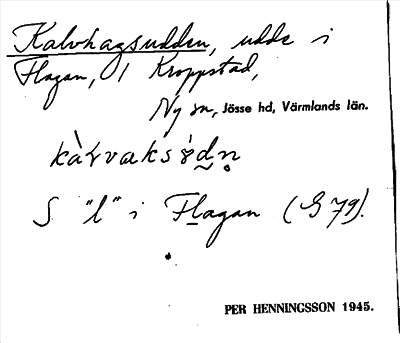 Kalvhagsudden, udde i
Flagan, 1 Kroppstad,
Ny sn, Jösse hd, Värmlands län.
S "l" i Flagan (G 79).
PER HENNINGSSON 1945.